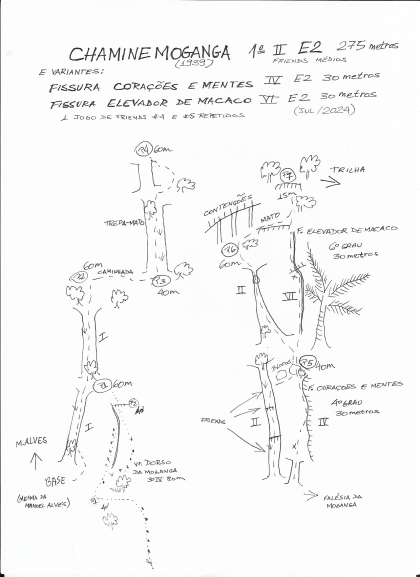 CHAMINE MOGANGA 1º II E2 275 metros
(1989) FRIENDS MÉDIOS
E VARIANTES:
FISSURA CORAÇÕES E MENTES IV E2 30 metros
FISSURA ELEVADOR DE MACACO VI E2 30 metros
1 JOGO DE FRIENDS #4 e #5 REPETIDOS (JUL/2024)
P4 60m
P7
TRILHA
15m
CONTENÇÕES
TREPA-MATO
MATO
F. ELEVADOR DE MACACO
P6
6º GRAU
60m
30 metros
60m
P2 CAMINHADA
P3
40m
II
VI
I
P5
40m
BLOCOS
P1 60m
F. CORAÇÕES E MENTES
4º GRAU
30 metros
FRIENDS
II
IV
I
M. ALVES
VIA DORSO
DA MOGANGA
3º IV 80m
BASE
(MESMA DA
MANOEL ALVES)
FALÉSIA DA
MOGANGA